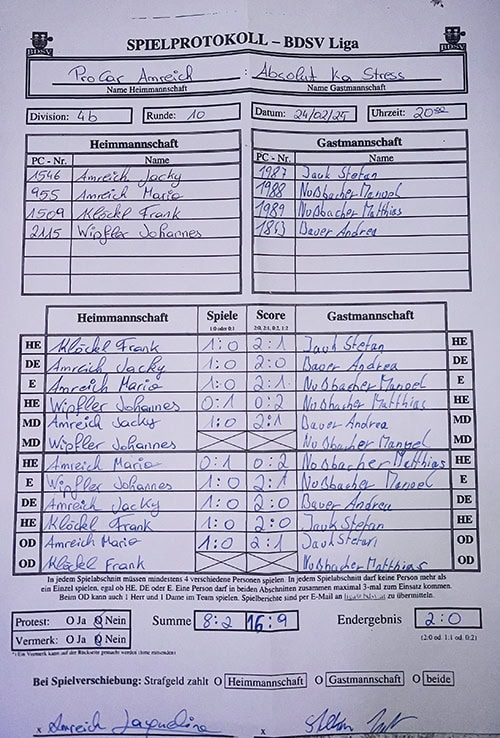 BDSV
SPIELPROTOKOLL – BDSV Liga
BDSV
ProCar Amreich : Absolut Ka Stress
Name Heimmannschaft Name Gastmannschaft
Division: 4b Runde: 10 Datum: 24/02/25 Uhrzeit: 20:00
Heimmannschaft Gastmannschaft
PC - Nr. Name PC - Nr. Name
1546 Amreich Jacky 1987 Jauk Stefan
955 Amreich Mario 1988 Nußbacher Manuel
1509 Klöckl Frank 1989 Nußbacher Matthias
2115 Wipfler Johannes 1843 Bauer Andrea
Heimmannschaft Spiele Score Gastmannschaft
1:0 oder 0:1 2:0, 2:1, 0:2, 1:2
HE Klöckl Frank 1:0 2:1 Jauk Stefan HE
DE Amreich Jacky 1:0 2:0 Bauer Andrea DE
E Amreich Mario 1:0 2:1 Nußbacher Manuel E
HE Wipfler Johannes 0:1 0:2 Nußbacher Matthias HE
MD Amreich Jacky 1:0 2:1 Bauer Andrea MD
MD Wipfler Johannes Nußbacher Manuel MD
HE Amreich Mario 0:1 0:2 Nußbacher Matthias HE
E Wipfler Johannes 1:0 2:1 Nußbacher Manuel E
DE Amreich Jacky 1:0 2:0 Bauer Andrea DE
HE Klöckl Frank 1:0 2:0 Jauk Stefan HE
OD Amreich Mario 1:0 2:1 Jauk Stefan OD
OD Klöckl Frank Nußbacher Matthias OD
In jedem Spielabschnitt müssen mindestens 4 verschiedene Personen spielen. In jedem Spielabschnitt darf keine Person mehr als
ein Einzel spielen, egal ob HE, DE oder E. Eine Person darf in beiden Abschnitten zusammen maximal 3-mal zum Einsatz kommen.
Beim OD kann auch 1 Herr und 1 Dame im Team spielen. Spielberichte sind per E-Mail an zu übermitteln.
Protest: O Ja O Nein Summe 8:2 16:9 Endergebnis 2:0
Vermerk: O Ja O Nein (2:0 od. 1:1 od. 0:2)
*) Ein Vermerk kann auf der Rückseite gemacht werden (bitte einsenden)
Bei Spielverschiebung: Strafgeld zahlt O Heimmannschaft O Gastmannschaft O beide
x Amreich Jacqueline x